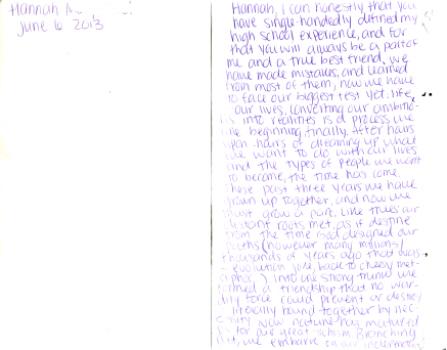 Hannah A.
June 6 2013
Hannah, I can honestly that you
have single-handedly defined my
high school experience, and for
that you will always be a part of
me and a true best friend. We
have made mistakes, and learned
from most of them, now we have
to face our biggest test yet: life,
our lives, converting our ambitio-
ns into realities is a process we
are beginning, finally. After hours
upon hours of dreaming up what
we want to do with our lives
and the types of people we want
to become, the time has come.
These past three years we have
grown up together, and now we
must grow apart. Like trees our
distant roots met, as if destine
from the time God designed our
paths (however many millions/
thousands of years ago that was
- evolution joke, back to cheesy met-
aphor) into one strong trunk we
formed a friendship that no wor-
dly force could prevent or destroy
literally bound together by nec-
essity now nature has matured
for our great schism. Branching
we embark on our